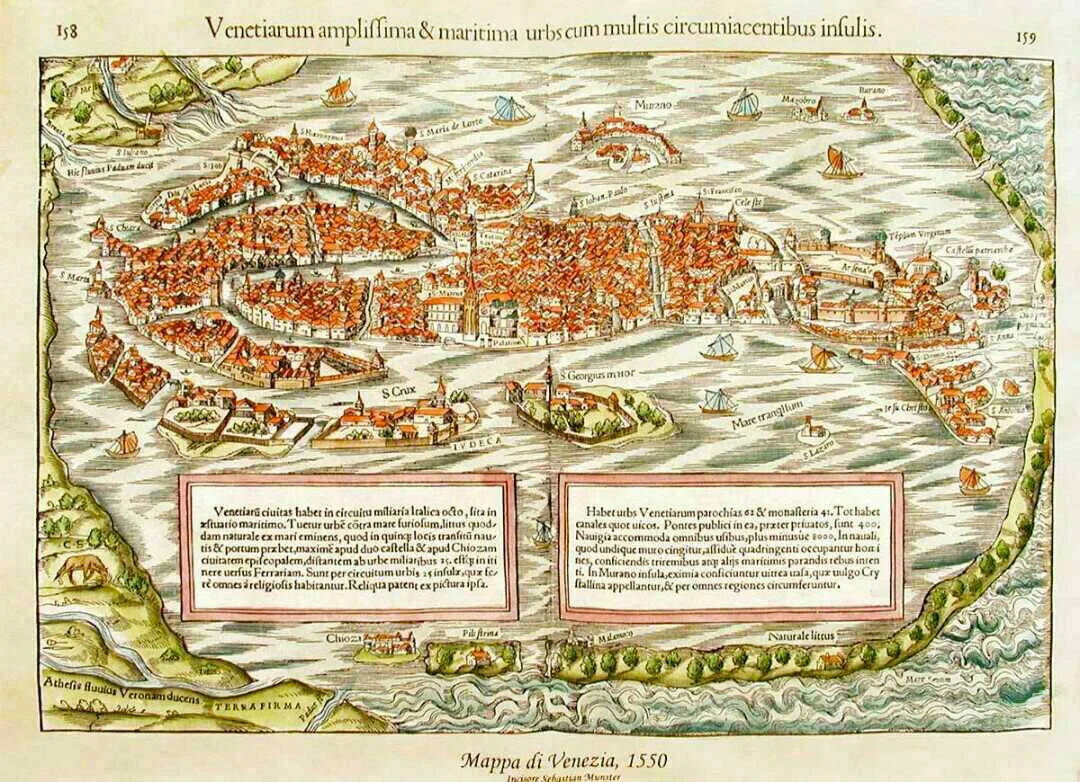 158
Venetiarum amplissima & maritima urbs cum multis circumiacentibus insulis.
159
Murano
Burano
Mazobro
S. Maria de Lorto
S. Iuliano
Hic fluuius Paduam ducit
S. Iob
S. Catarina
S. Iohan. Paulo
S. Iustina
S. Francisco
Celeste
S. Chiara
Têplum Virginum
Castellū patriarchæ
Arsenal
S. Maria
S. Marcus
Palatium
S. Anna
S. Crux
S. Georgius maior
Iesu Christo
S. Antonio
Mare tranquillum
S. Lazaro
IVDECA
Venetiarū ciuitas habet in circuitu miliaria Italica octo, sita in
æstuario maritimo. Tuetur urbē cōtra mare furiosum, littus quod-
dam naturale ex mari eminens, quod in quinq; locis transitū nau-
tis & portum præbet, maximè apud duo castella & apud Chiozam
ciuitatem episcopalem, distantem ab urbe miliaribus 25. estq; in iti
nere uersus Ferrariam. Sunt per circuitum urbis 25 insulæ, quæ fe-
rè omnes à religiosis habitantur. Reliqua patent ex pictura ipsa.
Habet urbs Venetiarum parochias 62 & monasteria 41. Tot habet
canales quot uicos. Pontes publici in ea, præter priuatos, sunt 400.
Nauigia accommoda omnibus usibus, plus minusue 8000. In nauali,
quod undique muro cingitur, assiduè quadringenti occupantur homi
nes, conficiendis triremibus atq; alijs maritimis parandis rebus inten
ti. In Murano insula, eximia conficiuntur uitrea uasa, quæ uulgo Cry
stallina appellantur, & per omnes regiones circumferuntur.
Chioza
Pilistrina
Malamoco
Naturale littus
Athesis fluuius Veronam ducens
TERRA FIRMA
Mappa di Venezia, 1550
Incisore Sebastian Munster